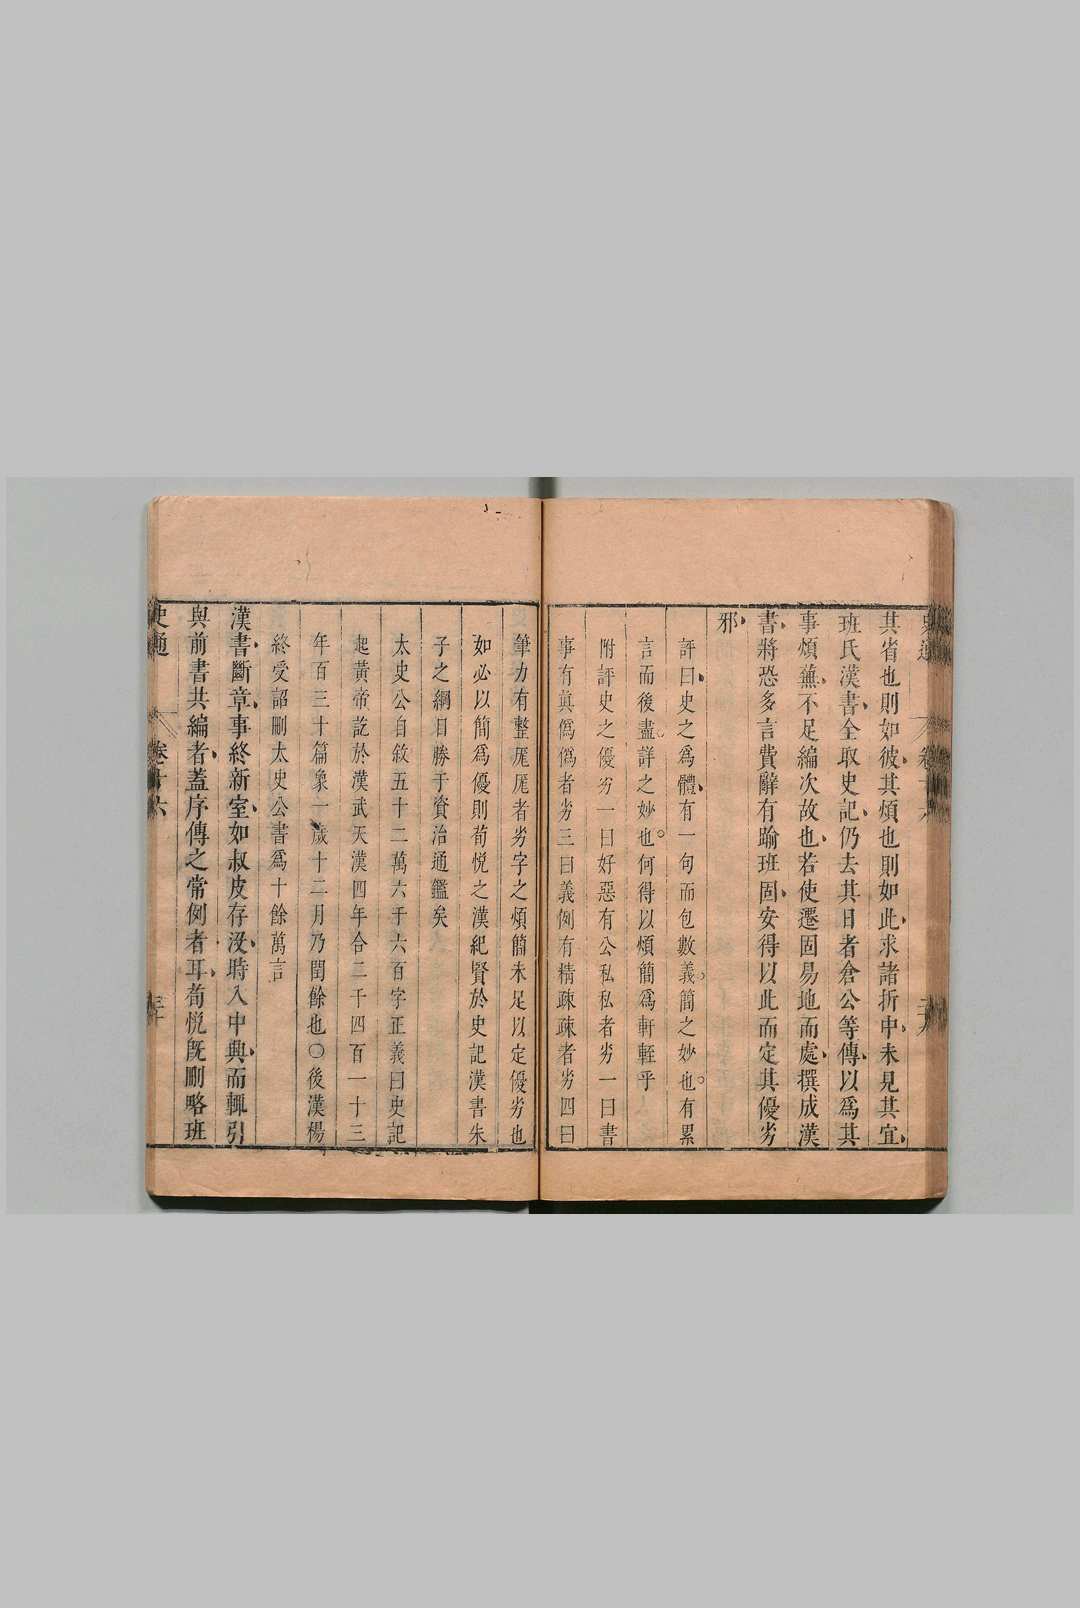 其省也則如彼其煩也則如此求諸折中未見其宜
班氏漢書全取史記仍去其日者倉公等傳以爲其
事煩蕪不足編次故也若使遷固易地而處撰成漢
書將恐多言費辭有踰班固安得以此而定其優劣
邪
評曰史之爲體有一句而包數義簡之妙也有累
言而後盡詳之妙也何得以煩簡爲軒輊乎
附評史之優劣一曰好惡有公私私者劣一曰書
事有眞僞僞者劣三曰義例有精疎疎者劣四曰
筆力有整厖厖者劣字之煩簡未足以定優劣也
如必以簡爲優則荀悅之漢紀賢於史記漢書朱
子之綱目勝于資治通鑑矣
太史公自敘五十二萬六千六百字正義曰史記
起黃帝訖於漢武天漢四年合二千四百一十三
年百三十篇象一歲十二月乃閏餘也〇後漢楊
終受詔刪太史公書爲十餘萬言
漢書斷章事終新室如叔皮存沒時入中興而輒引
與前書共編者蓋序傳之常例者耳荀悅旣刪略班
史通
卷十六